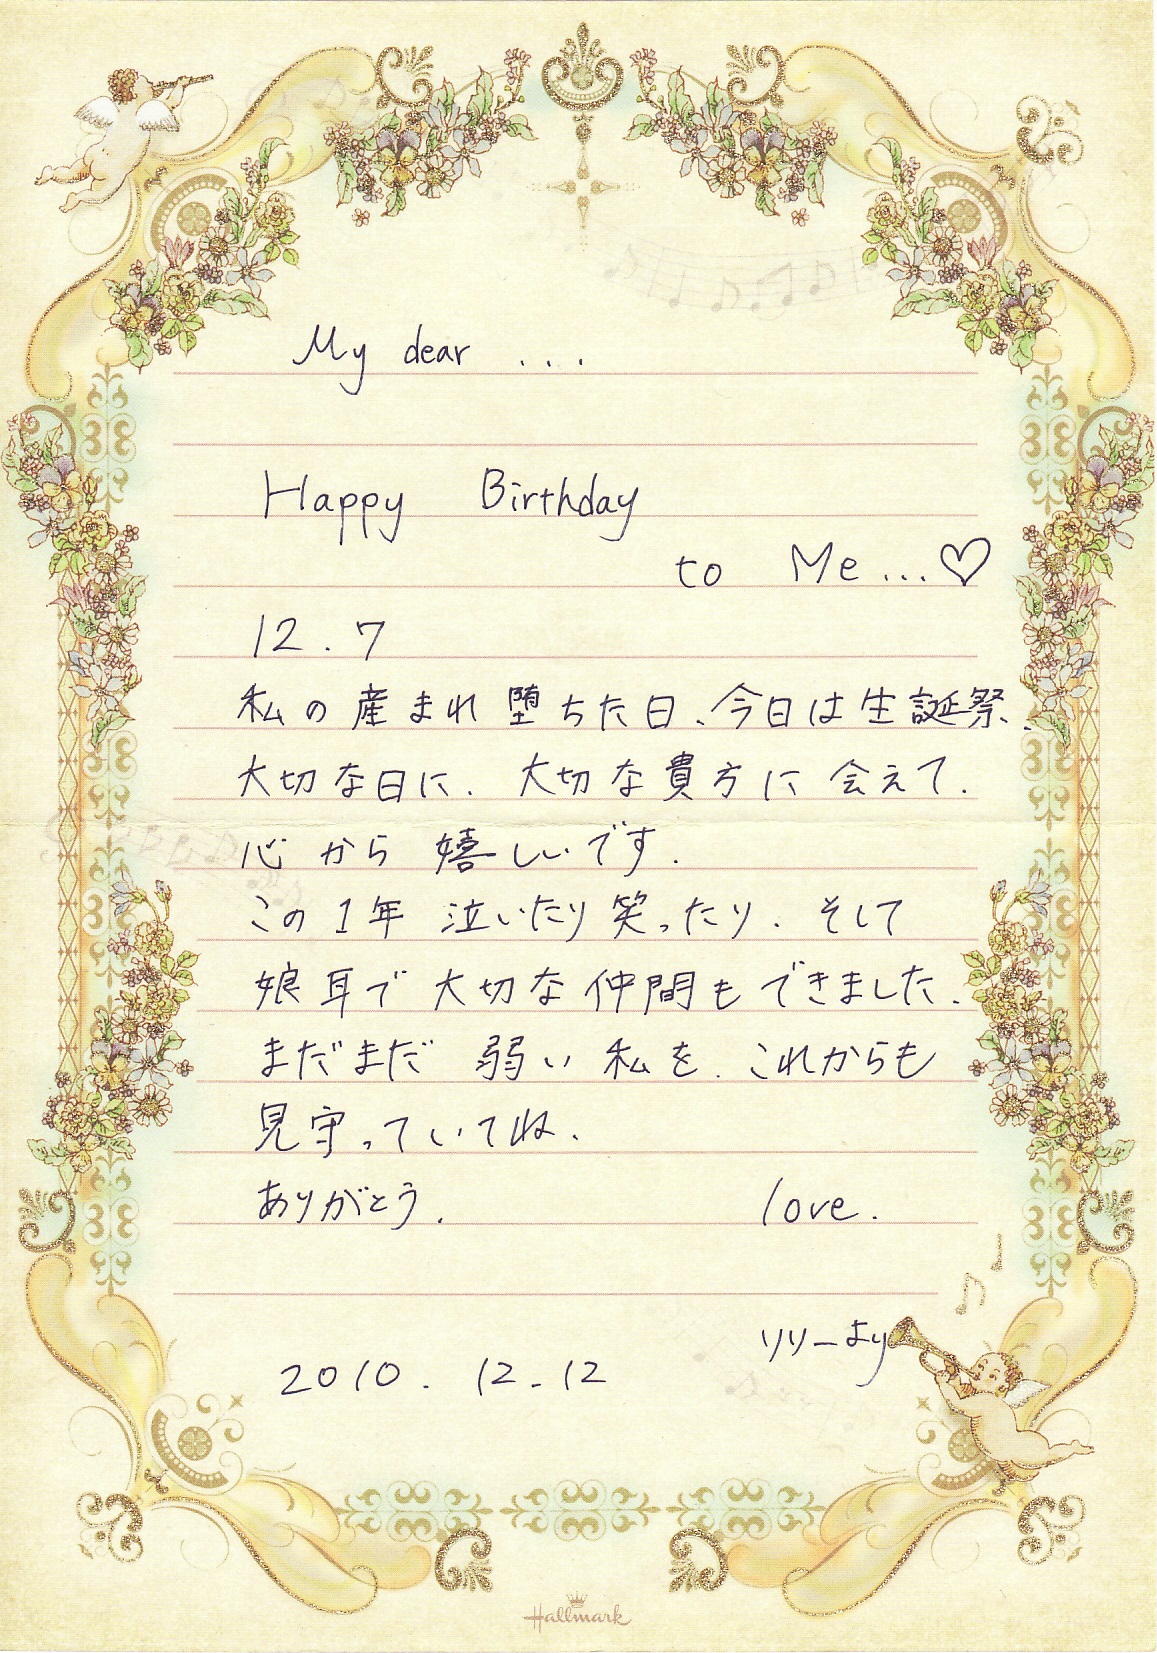 My dear ...
Happy Birthday
to Me...♡
12.7
私の産まれ堕ちた日、今日は生誕祭、
大切な日に、大切な貴方に会えて、
心から嬉しいです。
この1年 泣いたり笑ったり、そして
娘耳で大切な仲間もできました。
まだまだ 弱い私を、これからも
見守っていてね。
ありがとう。 love.
リリーより
2010. 12.12
Hallmark